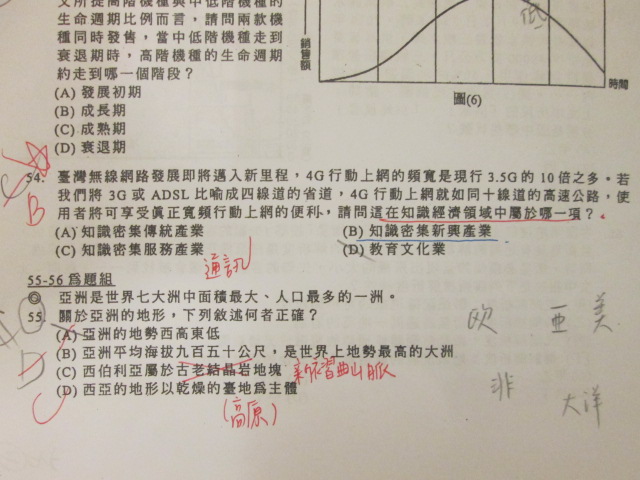 文所提高階機種與中低階機種的
生命週期比例而言，請問兩款機
種同時發售，當中低階機種走到
衰退期時，高階機種的生命週期
約走到哪一個階段？
(A) 發展初期
(B) 成長期
(C) 成熟期
(D) 衰退期
銷售額
低
時間
圖(6)
54. 臺灣無線網路發展即將邁入新里程，4G 行動上網的頻寬是現行 3.5G 的 10 倍之多。若
我們將 3G 或 ADSL 比喻成四線道的省道，4G 行動上網就如同十線道的高速公路，使
用者將可享受真正寬頻行動上網的便利，請問這在知識經濟領域中屬於哪一項？
B
(A) 知識密集傳統產業 (B) 知識密集新興產業
(C) 知識密集服務產業 (D) 教育文化業
通訊
55-56 為題組
◎ 亞洲是世界七大洲中面積最大、人口最多的一洲。
55. 關於亞洲的地形，下列敘述何者正確？
(A) 亞洲的地勢西高東低
(B) 亞洲平均海拔九百五十公尺，是世界上地勢最高的大洲
(C) 西伯利亞屬於古老結晶岩地塊 新褶曲山脈
(D) 西亞的地形以乾燥的臺地為主體
(高原)
D
歐 亞 美
非 大洋